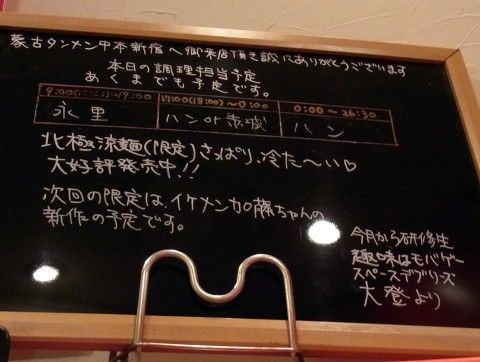 蒙古タンメン中本新宿へ御来店頂き誠にありがとうございます
本日の調理担当予定
あくまでも予定です。
17:00(18:00)〜0:00
0:00〜26:30
永里
ハン or 赤城
ハン
北極涼麺(限定)さっぱり、冷た〜い♡
大好評発売中!!
次回の限定は、イケメン加藤ちゃんの
新作の予定です。
今月から研修生
趣味はモバゲー
スペースデブリーズ
大登より